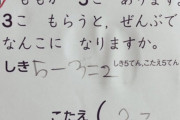 ももが 3こ あります。
3こ もらうと、ぜんぶで
なんこに なりますか。
しき 5-3=2 しき5てん、こたえ5てん
こたえ (